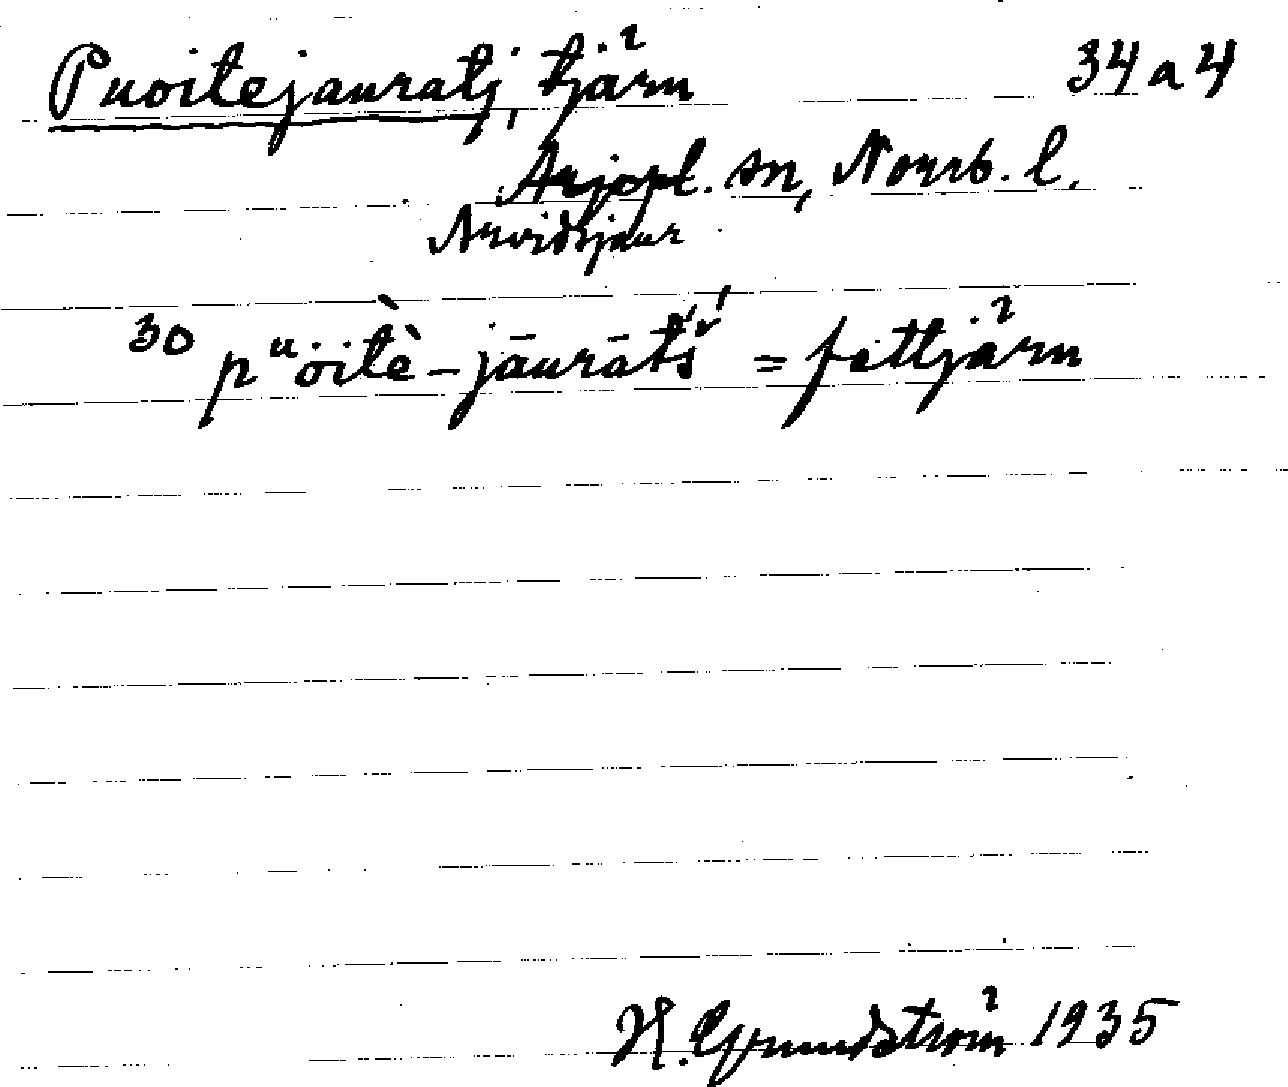 Puoitejauratj, tjärn 34 a 4
Arjepl. sn, Norrb. l.
Arvidsjaur
30 pᵘöitè-jāurāt́ś = fettjärn
H. Grundström 1935